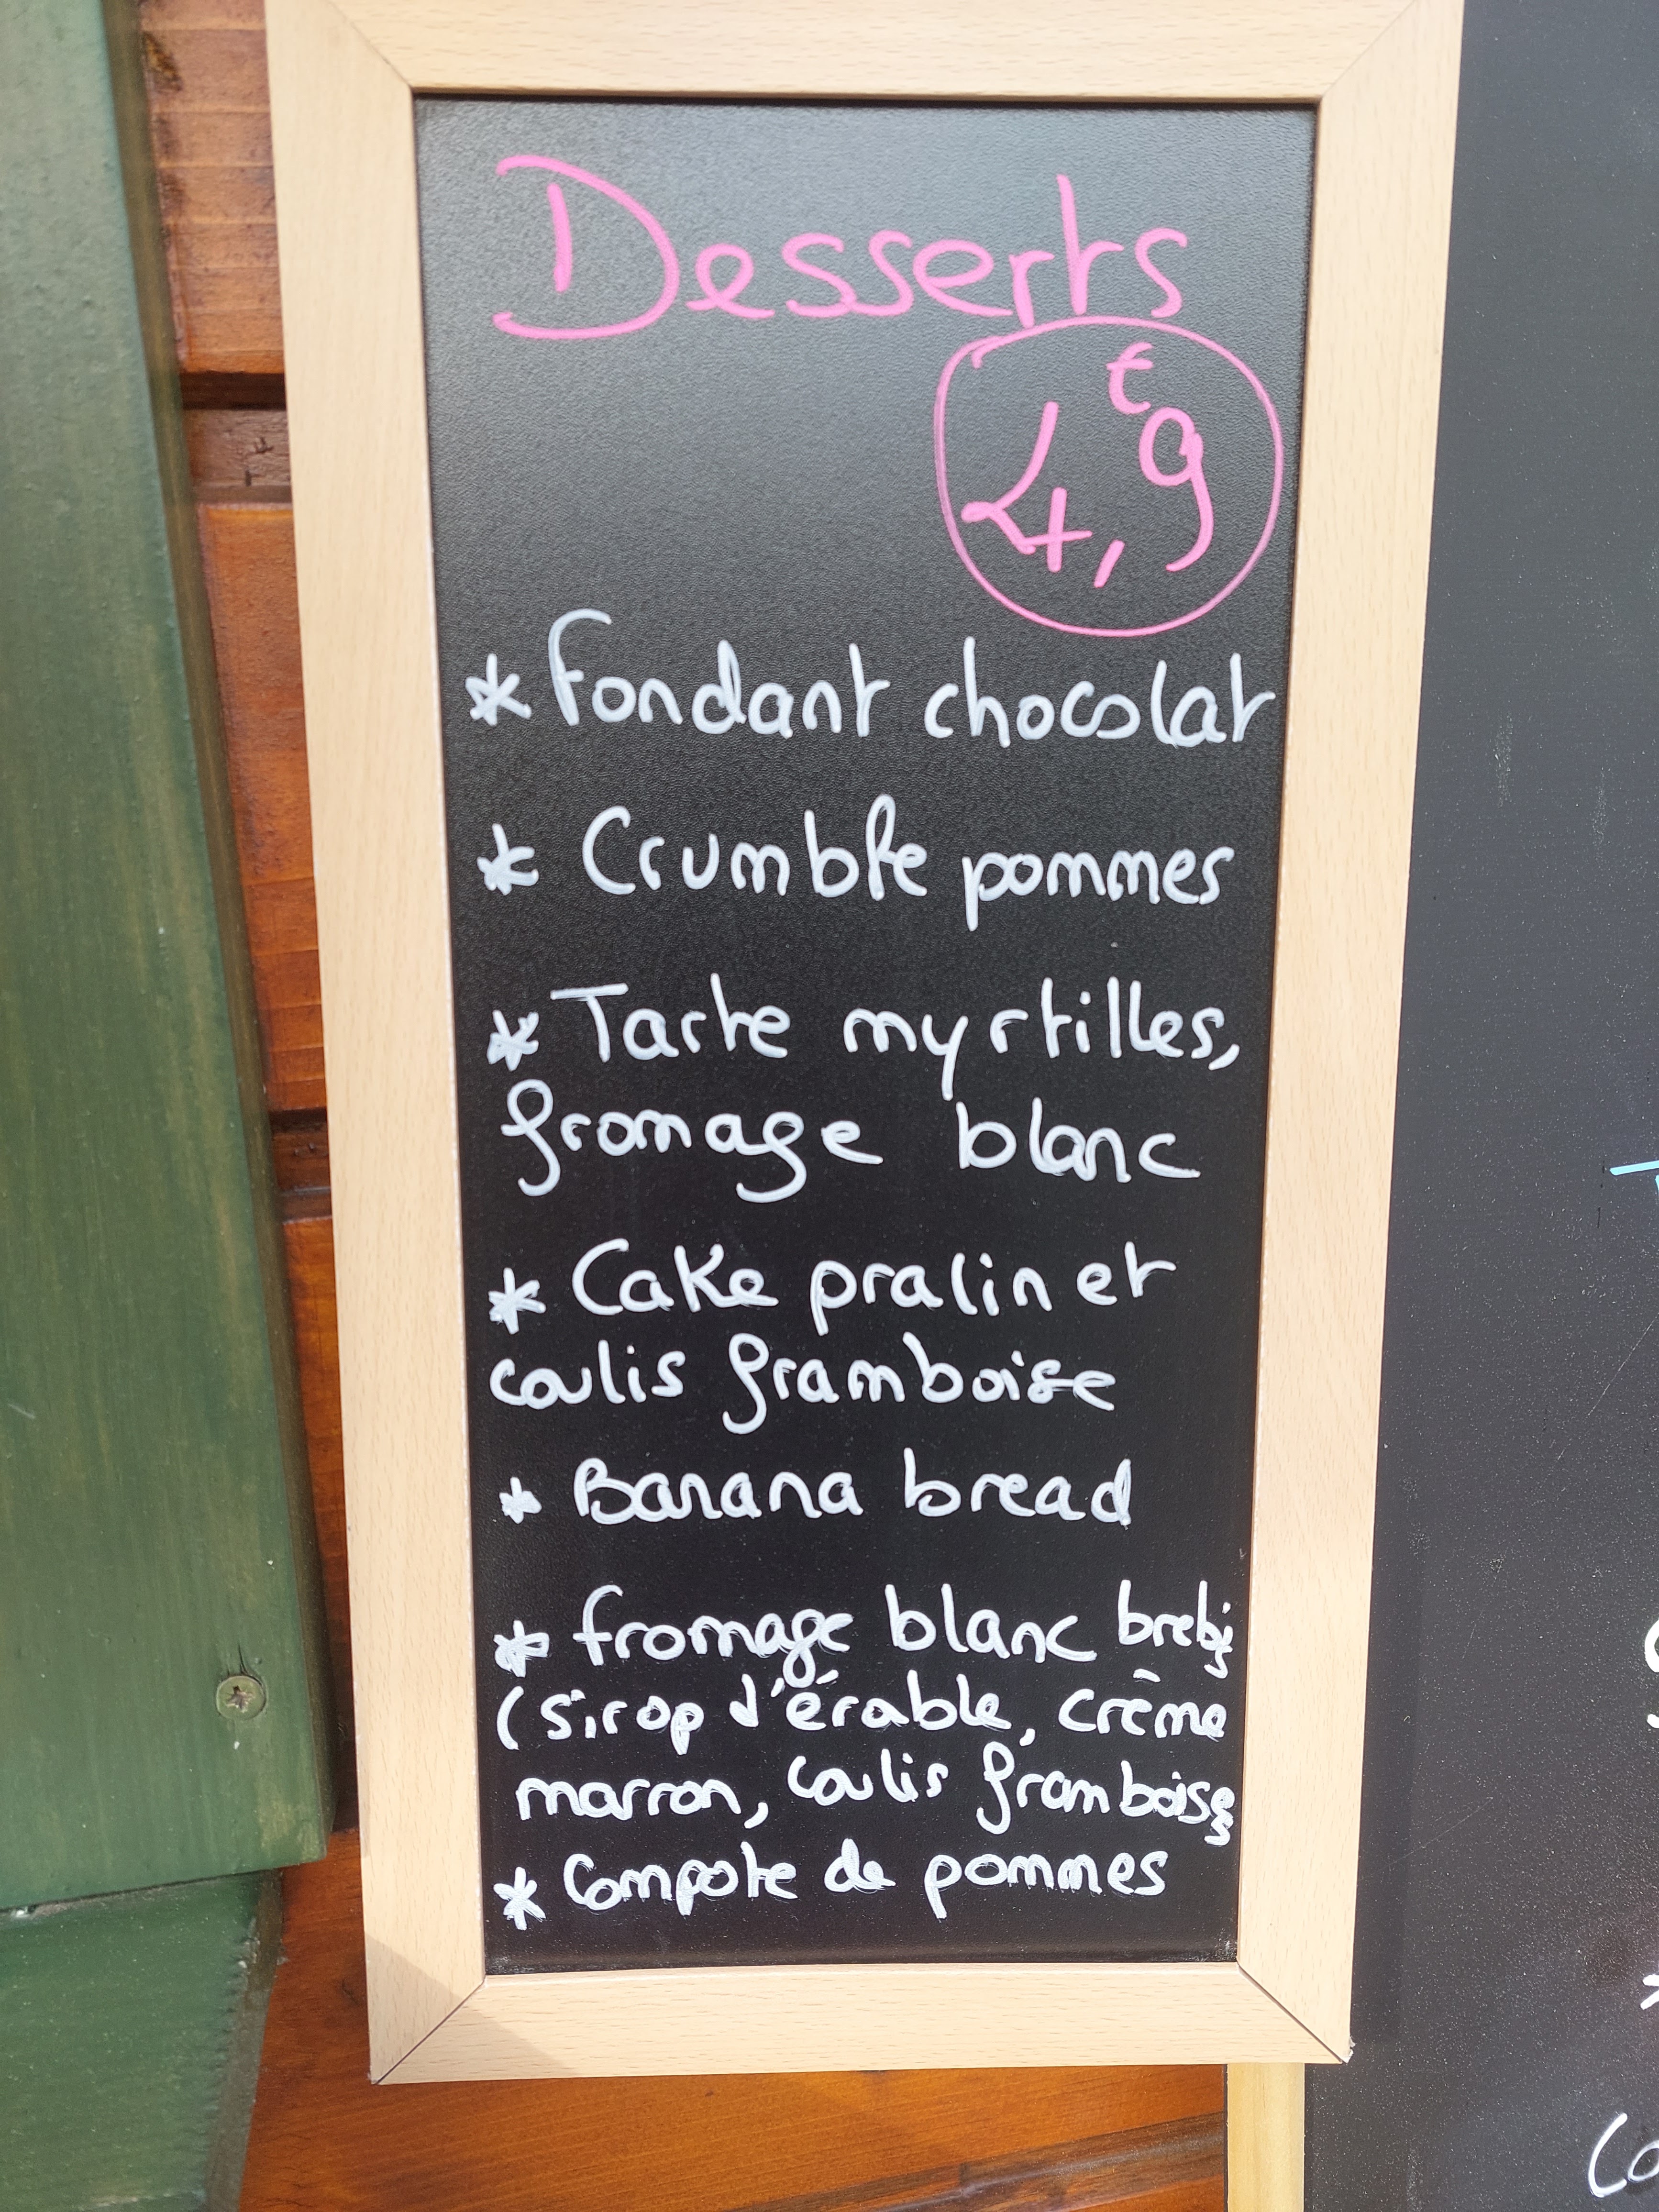 Desserts
4,€9
* Fondant chocolat
* Crumble pommes
* Tarte myrtilles,
fromage blanc
* Cake pralin et
coulis framboise
* Banana bread
* fromage blanc brebis
(sirop d'érable, crème
marron, coulis framboises
* Compote de pommes